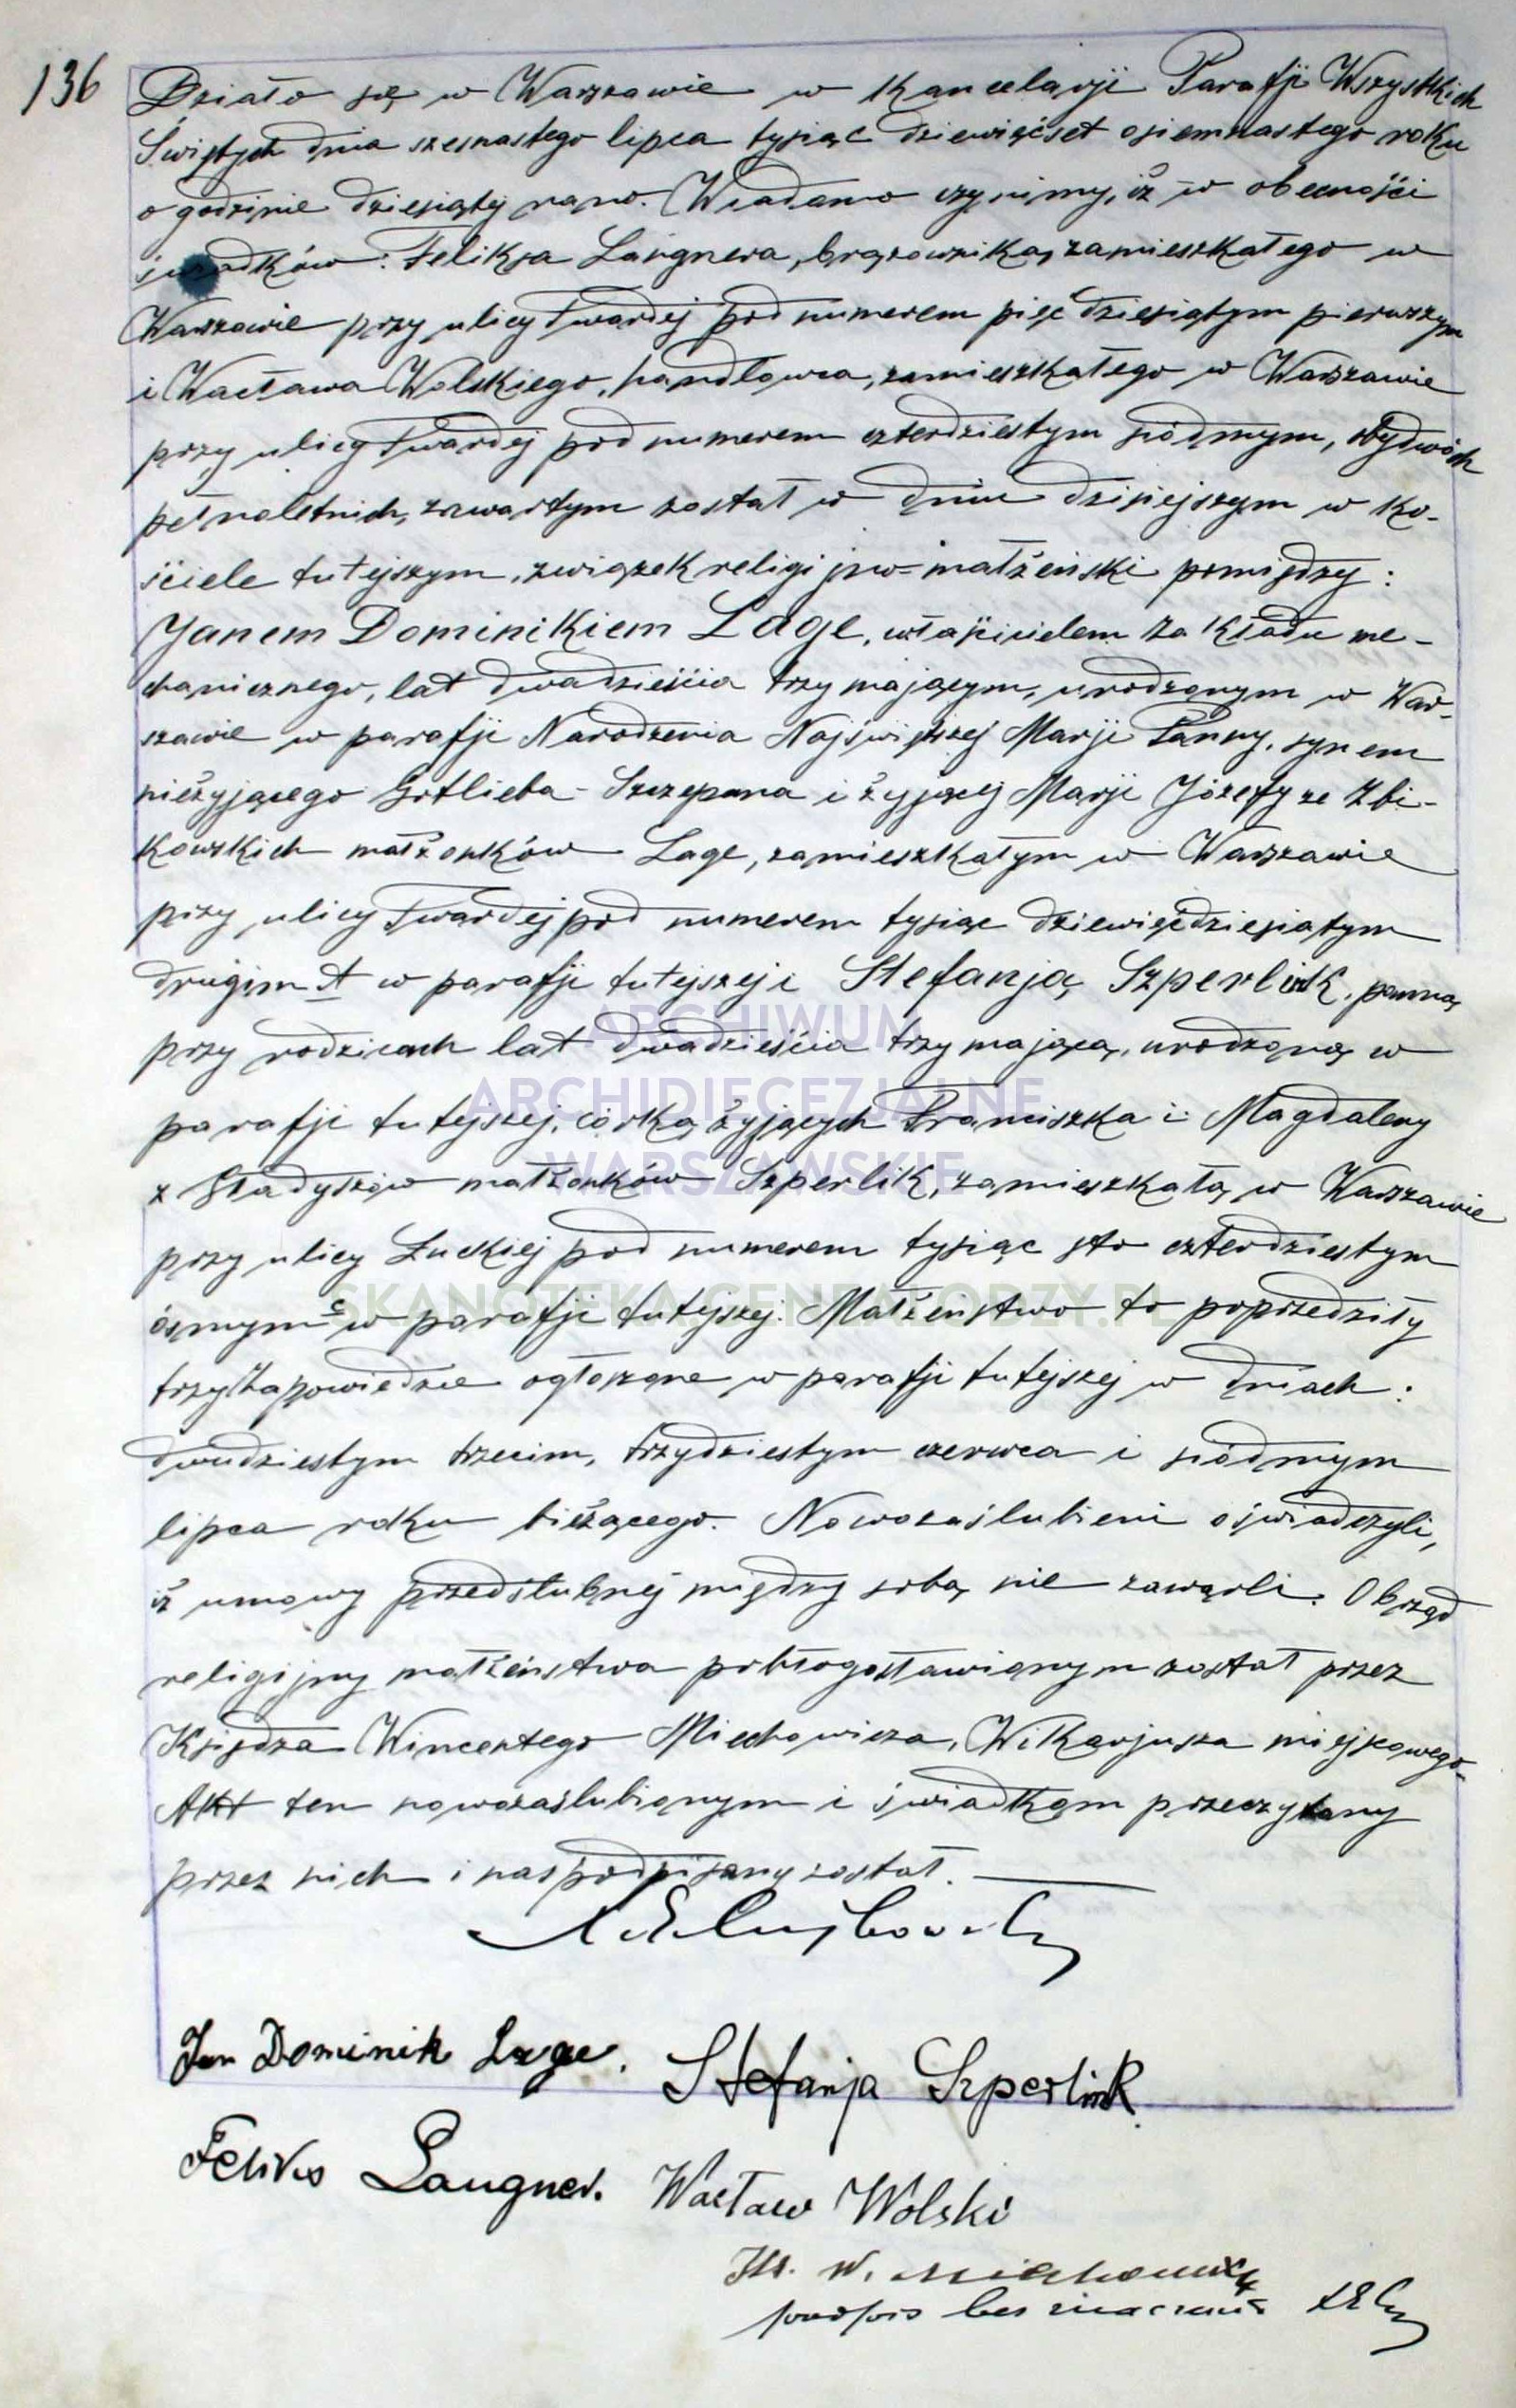 136
Działo się w Warszawie w Kancelarji Parafji Wszystkich
Świętych dnia szesnastego lipca tysiąc dziewięćset osiemnastego roku
o godzinie dziesiątej rano. Wiadomo czynimy, iż w obecności
świadków: Feliksa Langnera, brązownika, zamieszkałego w
Warszawie przy ulicy Twardej pod numerem pięćdziesiątym pierwszym
i Wacława Wolskiego, handlowca, zamieszkałego w Warszawie
przy ulicy Twardej pod numerem czterdziestym siódmym, obydwóch
pełnoletnich, zawartym został w dniu dzisiejszym w ko-
ściele tutejszym, związek religijno-małżeński pomiędzy:
Janem Dominikiem Lage, właścicielem zakładu me-
chanicznego, lat dwadzieścia trzy mającym, urodzonym w War-
szawie w parafji Narodzenia Najświętszej Marji Panny, synem
nieżyjącego Gotlieba-Szczepana i żyjącej Marji Józefy ze Zbi-
kowskich małżonków Lage, zamieszkałym w Warszawie
przy ulicy Twardej pod numerem tysiąc dziewięćdziesiątym
drugim A w parafji tutejszej i Stefanją Szperlik, panną
przy rodzicach lat dwadzieścia trzy mającą, urodzoną w
parafji tutejszej, córką żyjących Franciszka i Magdaleny
z małżonków Szperlik, zamieszkałą w Warszawie
przy ulicy Łuckiej pod numerem tysiąc sto czterdziestym
ósmym c w parafji tutejszej. Małżeństwo to poprzedziły
trzy zapowiedzie ogłoszone w parafji tutejszej w dniach:
dwudziestym trzecim, trzydziestym czerwca i siódmym
lipca roku bieżącego. Nowozaślubieni oświadczyli,
iż umowy przedślubnej między sobą nie zawarli. Obrząd
religijny małżeństwa pobłogosławionym został przez
Księdza Wincentego Miechowicza, Wikarjusza miejscowego.
Akt ten nowozaślubionym i świadkom przeczytany
przez nich i nas podpisany został.
Jan Dominik Lage.
Stefanja Szperlink
Feliks Langner.
Wacław Wolski
Ks. W. Miechowicz
podpis bez znaczenia
ARCHIWUM
ARCHIDIECEZJALNE
WARSZAWSKIE
SKANOTEKA.GENEALODZY.PL